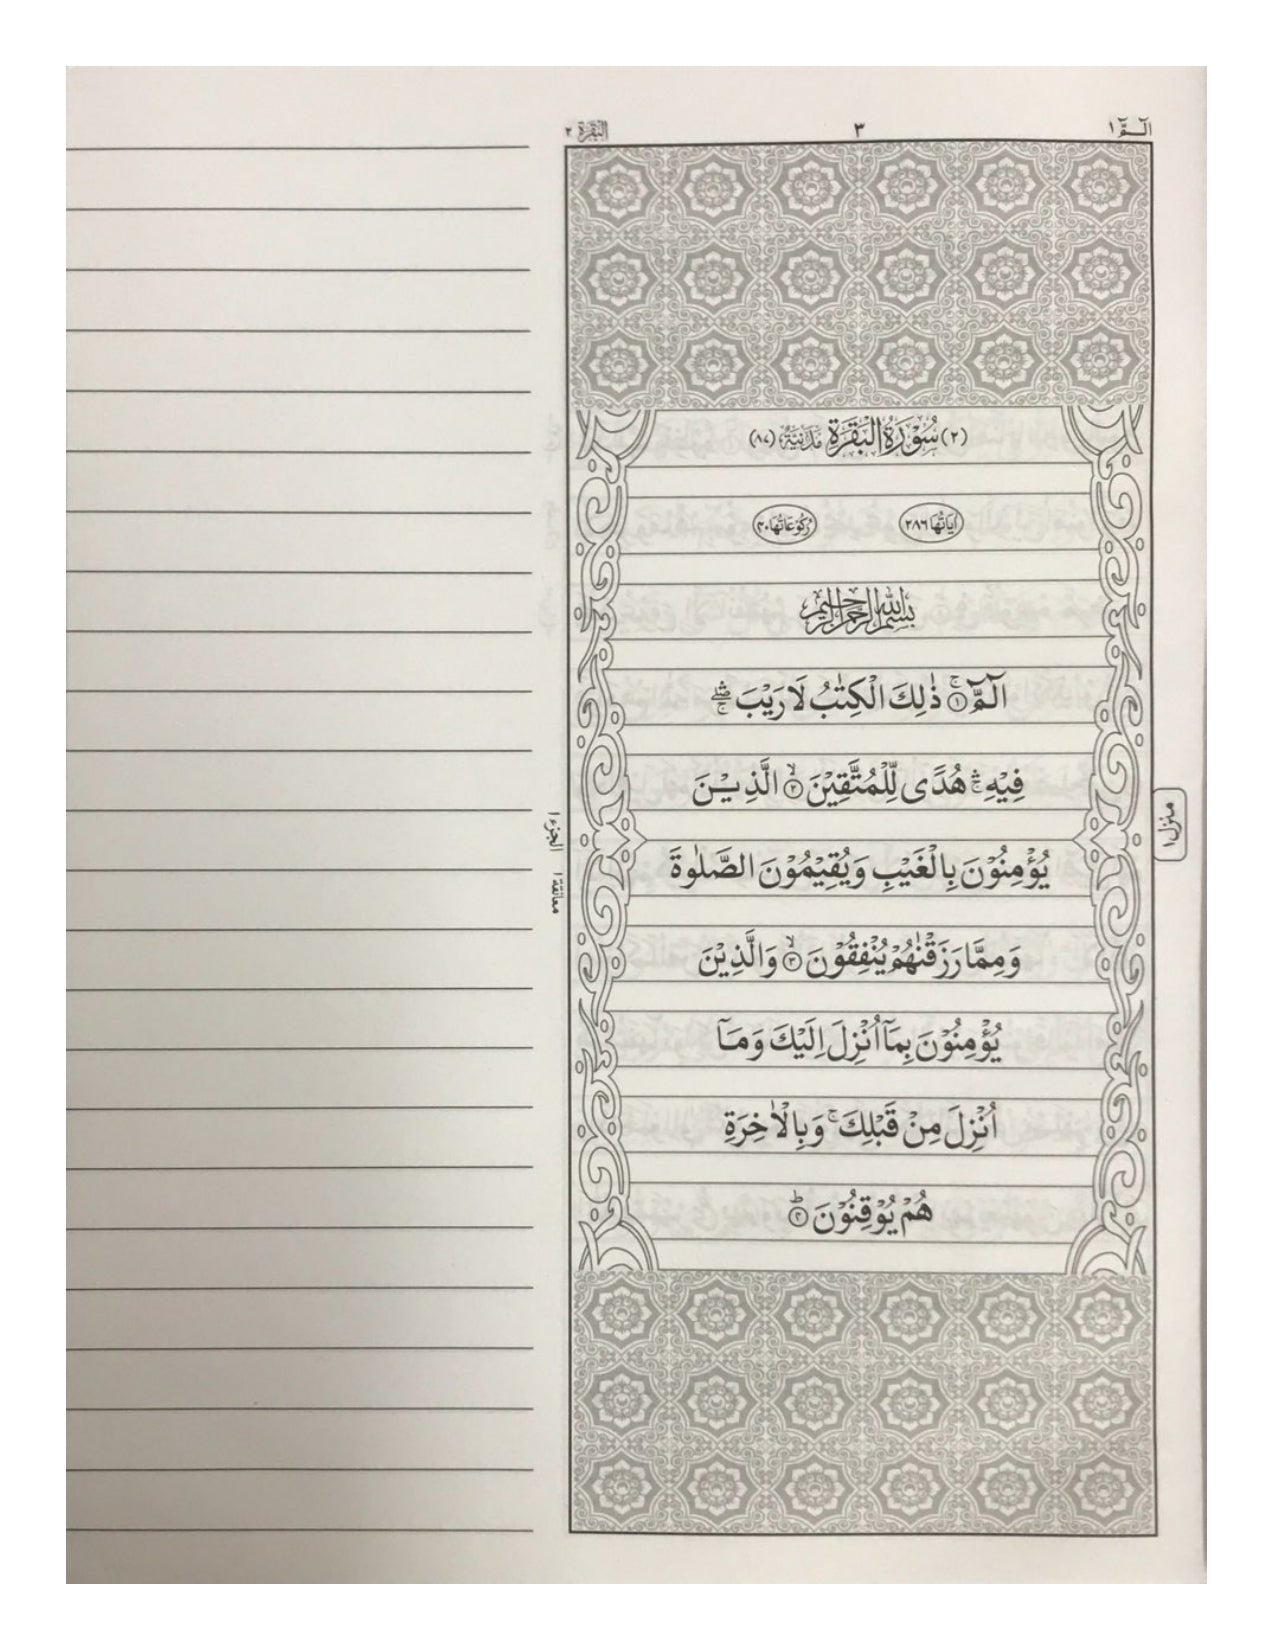 الٓـمّٓ ١
٣
البقرة ٢
(٢) سُوْرَةُ الْبَقَرَةِ مَدَنِيَّةٌ (٨٧)
اٰيَاتُهَا ٢٨٦ رُكُوْعَاتُهَا ٤٠
بِسْمِ اللّٰهِ الرَّحْمٰنِ الرَّحِيْمِ
الٓمّٓ ۚ﴿١﴾ ذٰلِكَ الْكِتٰبُ لَا رَيْبَ ۛۖۚ
فِيْهِ ۛۚ هُدًى لِّلْمُتَّقِيْنَ ۙ﴿٢﴾ الَّذِيْنَ
يُؤْمِنُوْنَ بِالْغَيْبِ وَيُقِيْمُوْنَ الصَّلٰوةَ
وَمِمَّا رَزَقْنٰهُمْ يُنْفِقُوْنَ ۙ﴿٣﴾ وَالَّذِيْنَ
يُؤْمِنُوْنَ بِمَآ اُنْزِلَ اِلَيْكَ وَمَآ
اُنْزِلَ مِنْ قَبْلِكَ ۚ وَبِالْاٰخِرَةِ
هُمْ يُوْقِنُوْنَ ؕ﴿٤﴾
منزل ١
الجزء ١
معانقة ١